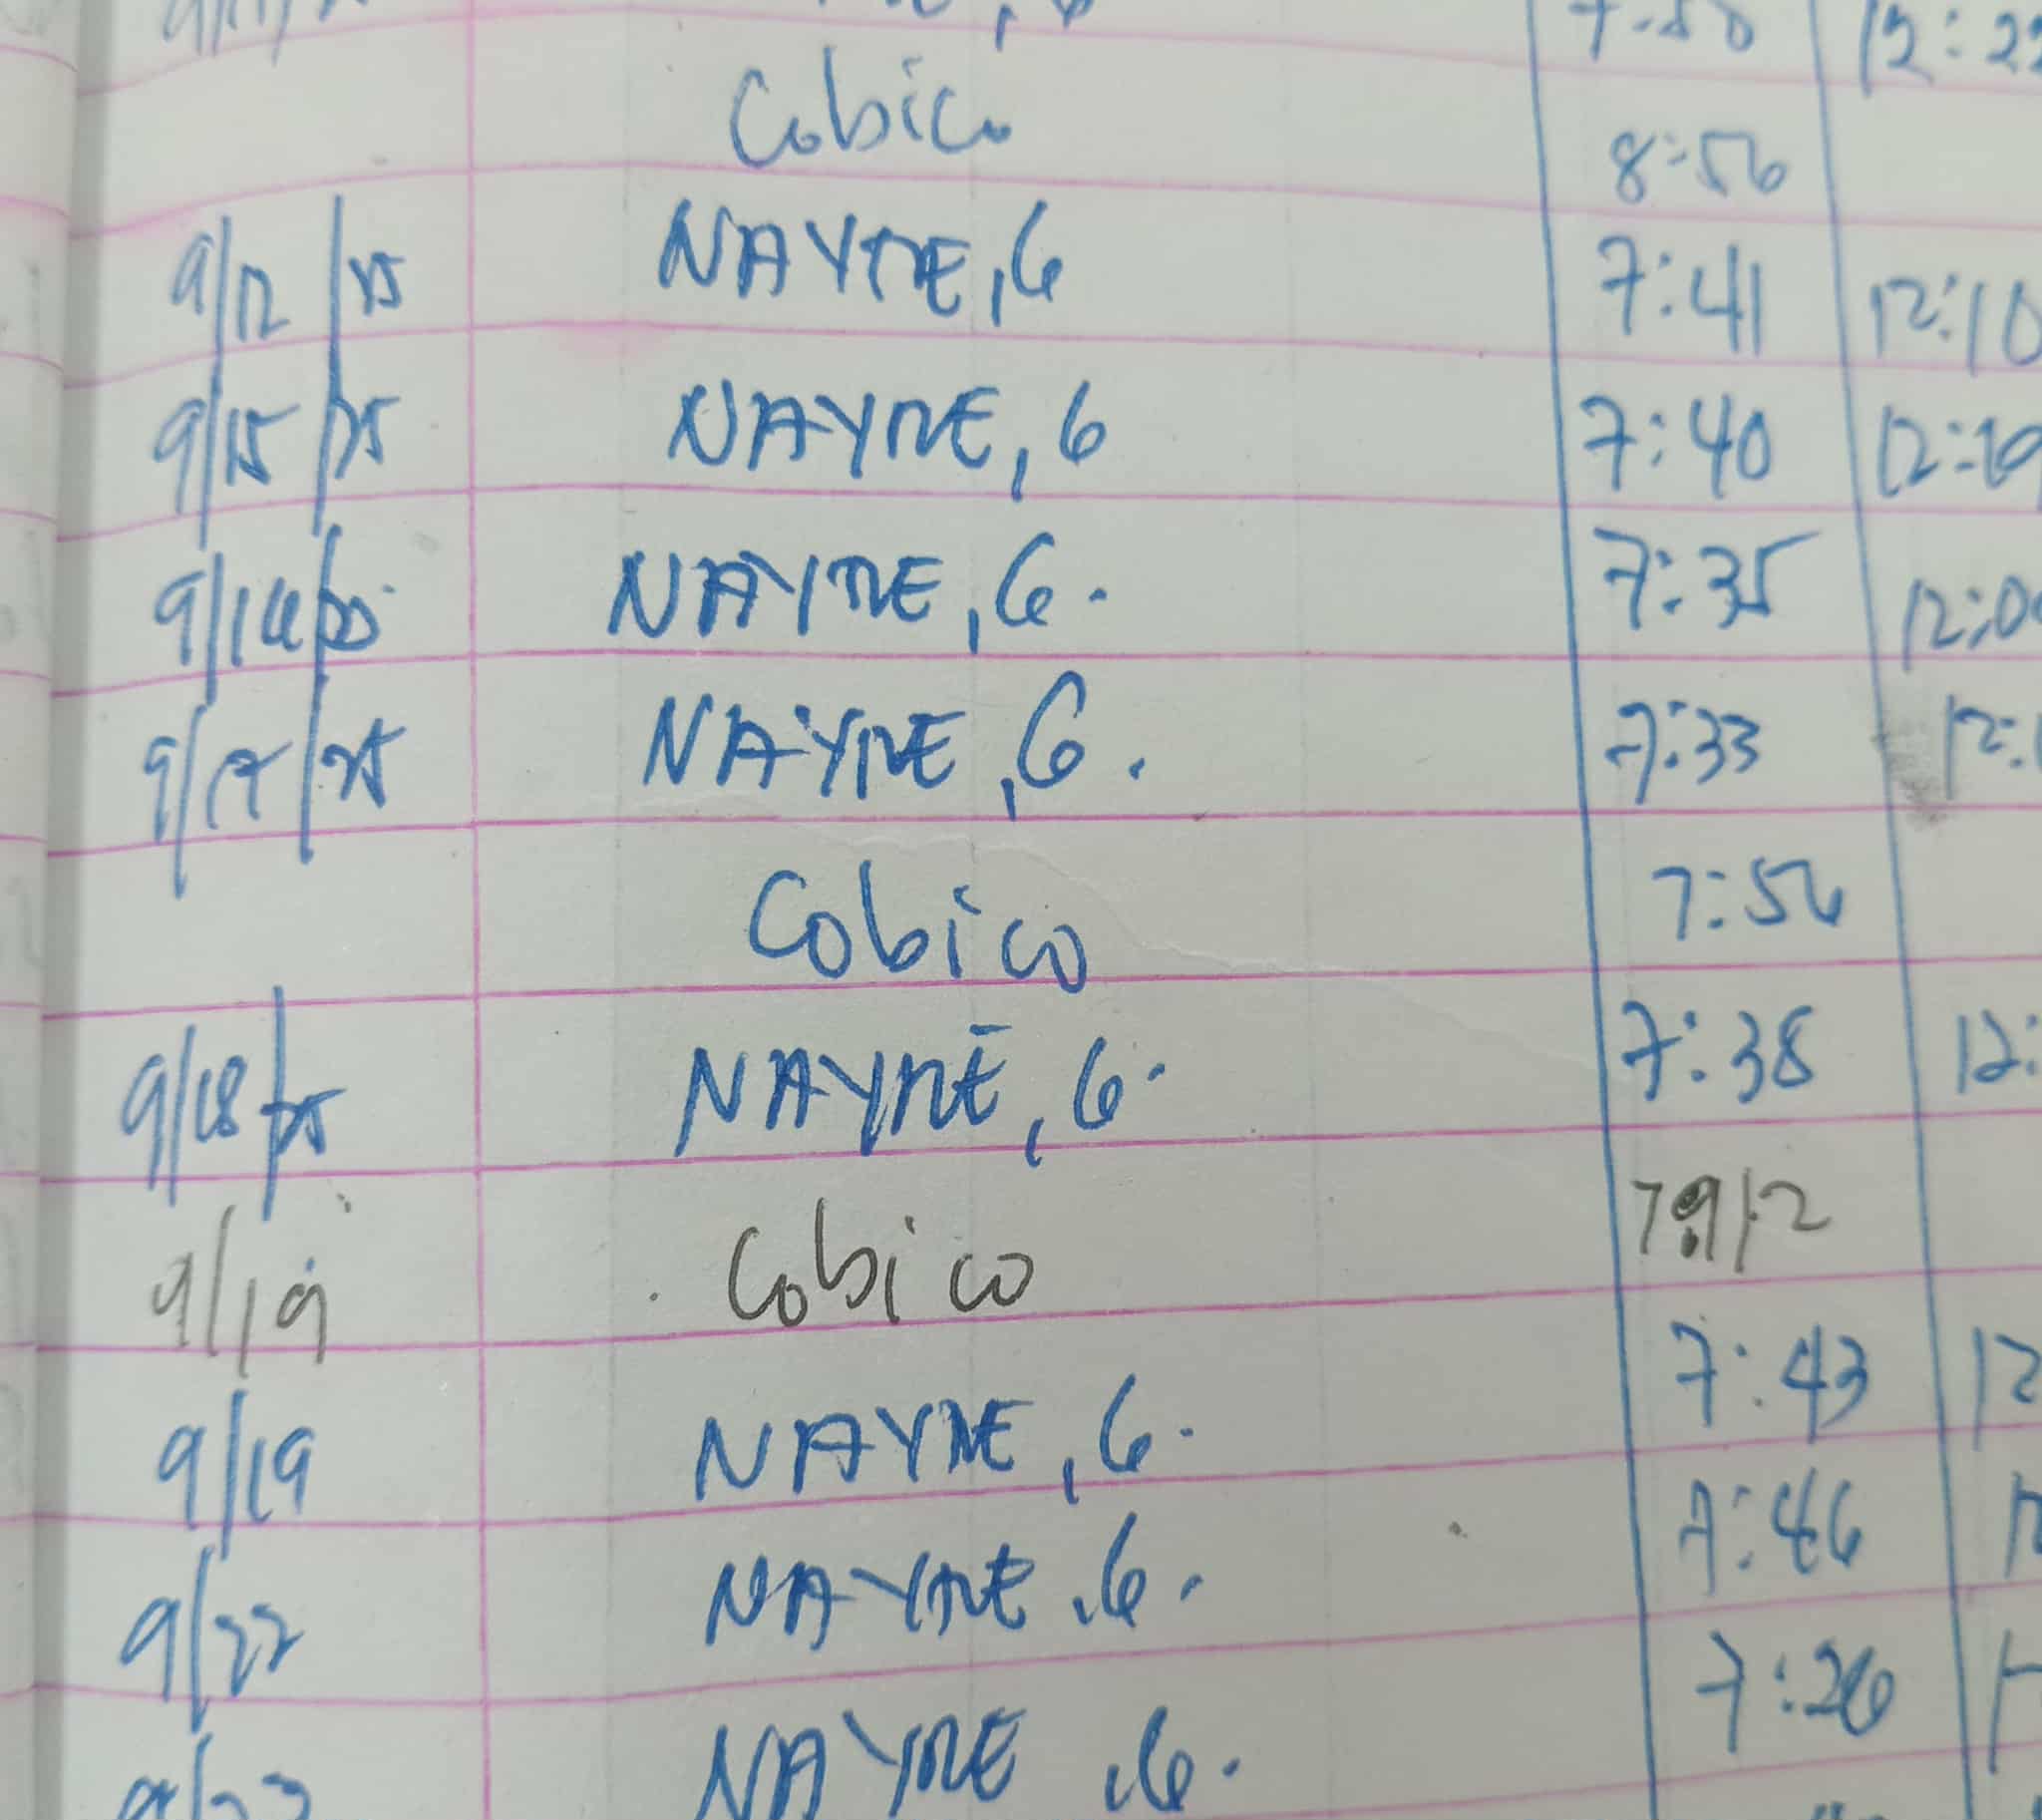 Cobico 8:56
9/12/25 NAYRE, G 7:41 12:10
9/15/25 NAYRE, G 7:40 12:19
9/16/25 NAYRE, G. 7:35 12:0
9/17/25 NAYRE, G. 7:33 12:1
Cobico 7:56
9/18/25 NAYRE, G. 7:38 12:
9/19 Cobico
9/19 NAYRE, G. 7:43 12
9/22 NAYRE, G. 7:46
NAYRE, G. 7:26